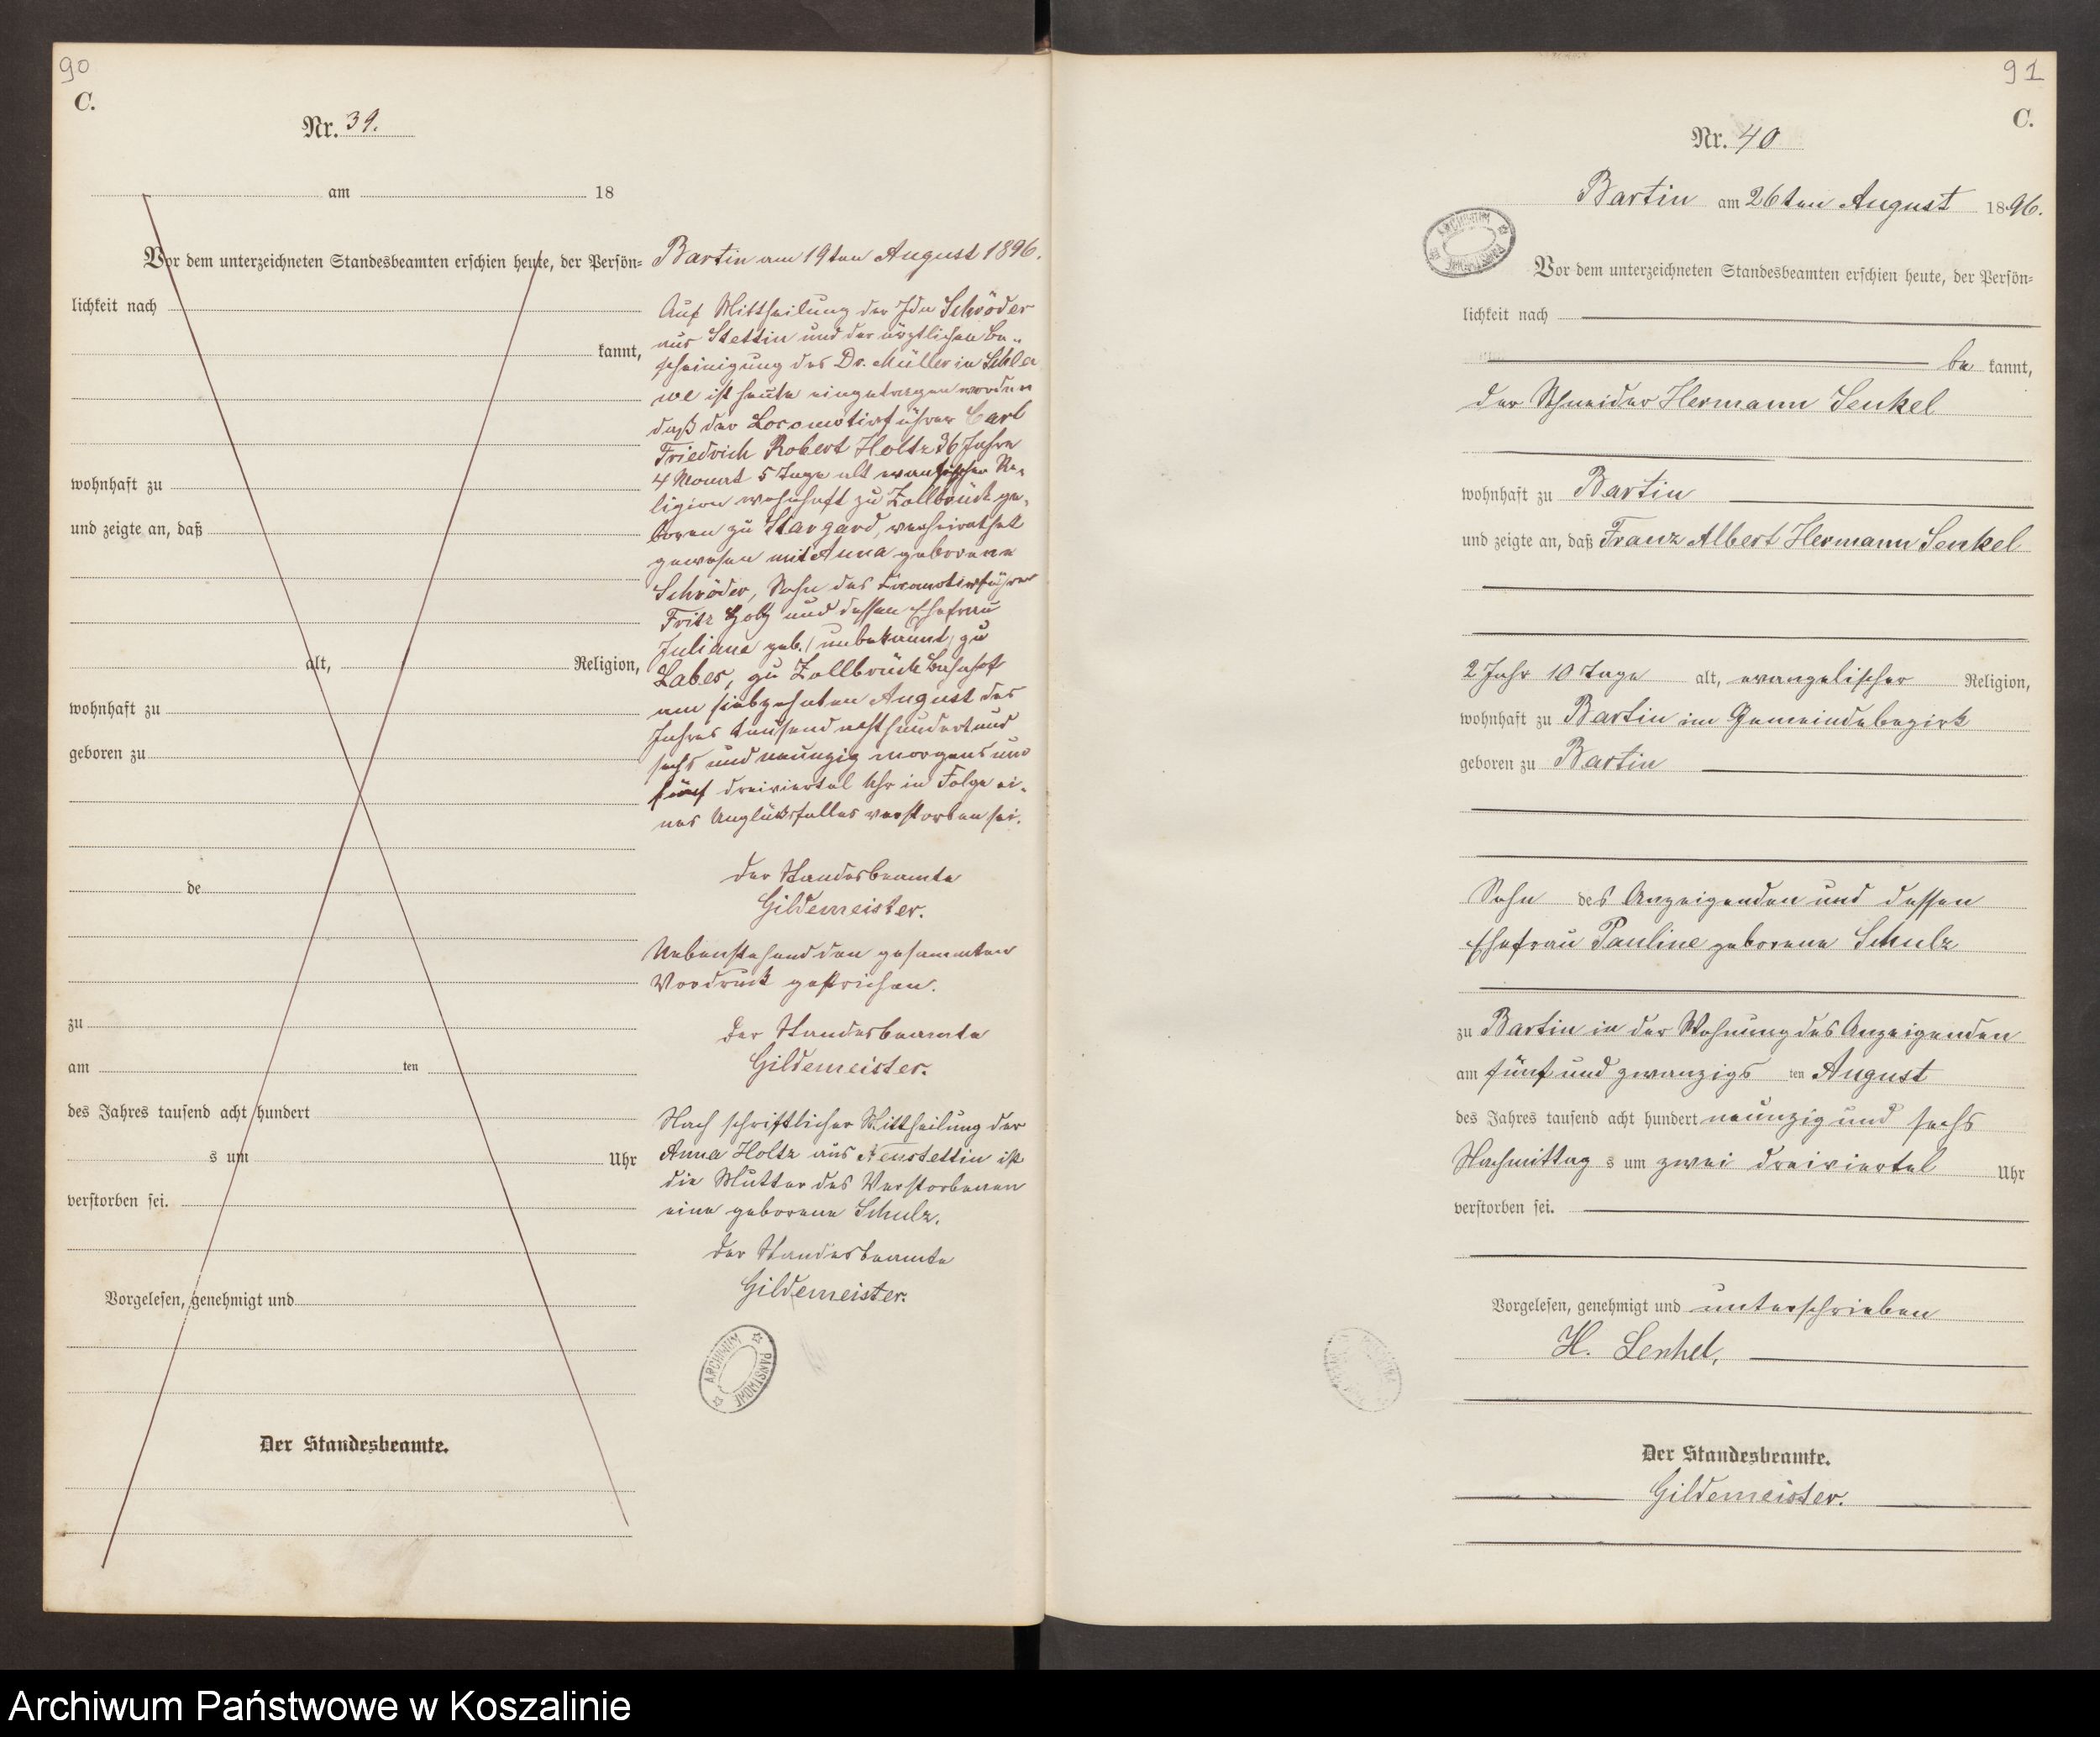 90
C.
Nr. 39.
am 18
Vor dem unterzeichneten Standesbeamten erschien heute, der Persön-
lichkeit nach
kannt,
wohnhaft zu
und zeigte an, daß
alt, Religion,
wohnhaft zu
geboren zu
de
zu
am ten
des Jahres tausend acht hundert
s um Uhr
verstorben sei.
Vorgelesen, genehmigt und
Der Standesbeamte.
Bartin am 19ten August 1896.
Auf Mittheilung der Ida Schröder
aus Stettin und der ärztlichen Be-
scheinigung des Dr. Müller in Schla
we ist heute eingetragen worden
daß der Locomotivführer Carl
Friedrich Robert Holtz 36 Jahre
4 Monat 5 Tage alt evangelischer Re-
ligion wohnhaft zu Zollbrück ge-
boren zu Stargard, verheirathet
gewesen mit Anna geborene
Schröder, Sohn des Locomotivführer
Fritz Holtz und dessen Ehefrau
Juliane geb. (unbekannt) zu
Labes, zu Zollbrück Bahnhof
am siebzehnten August des
Jahres tausend achthundert und
sechs und neunzig morgens um
fünf dreiviertel Uhr in Folge ei-
nes Unglücksfalles verstorben sei.
Der Standesbeamte
Gildemeister.
Nebenstehenden gesammten
Vordruck gestrichen.
Der Standesbeamte
Gildemeister.
Nach schriftlicher Mittheilung der
Anna Holtz aus Neustettin ist
die Mutter des Verstorbenen
eine geborene Schulz.
Der Standesbeamte
Gildemeister.
ARCHIWUM PAŃSTWOWE
91
C.
Nr. 40
Bartin am 26ten August 1896.
ARCHIWUM PAŃSTWOWE
Vor dem unterzeichneten Standesbeamten erschien heute, der Persön-
lichkeit nach
be kannt,
der Schneider Hermann Senkel
wohnhaft zu Bartin
und zeigte an, daß Franz Albert Hermann Senkel
2 Jahr 10 Tage alt, evangelischer Religion,
wohnhaft zu Bartin im Gemeindebezirk
geboren zu Bartin
Sohn des Anzeigenden und dessen
Ehefrau Pauline geborene Schulz
zu Bartin in der Wohnung des Anzeigenden
am fünf und zwanzigs ten August
des Jahres tausend acht hundert neunzig und sechs
Nachmittag s um zwei dreiviertel Uhr
verstorben sei.
Vorgelesen, genehmigt und unterschrieben
H. Senkel,
Der Standesbeamte.
Gildemeister.
Archiwum Państwowe w Koszalinie